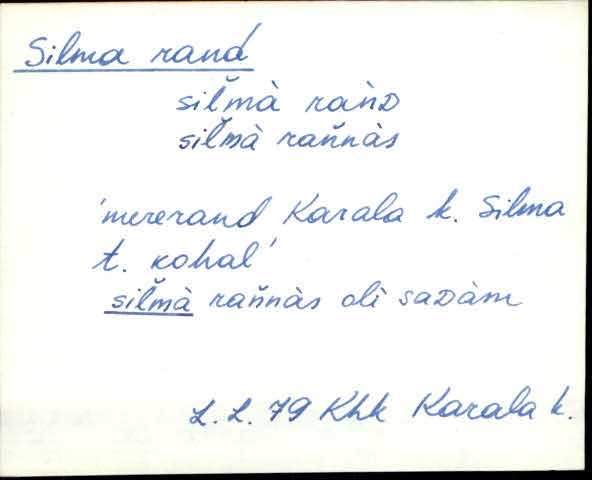 Silma rand
siľmà ràǹᴅ
siľmà raňnàs
'mererand Karala k. Silma
t. kohal'
siľmà raňnàs oli saᴅàm
L.L. 79 Khk Karala k.